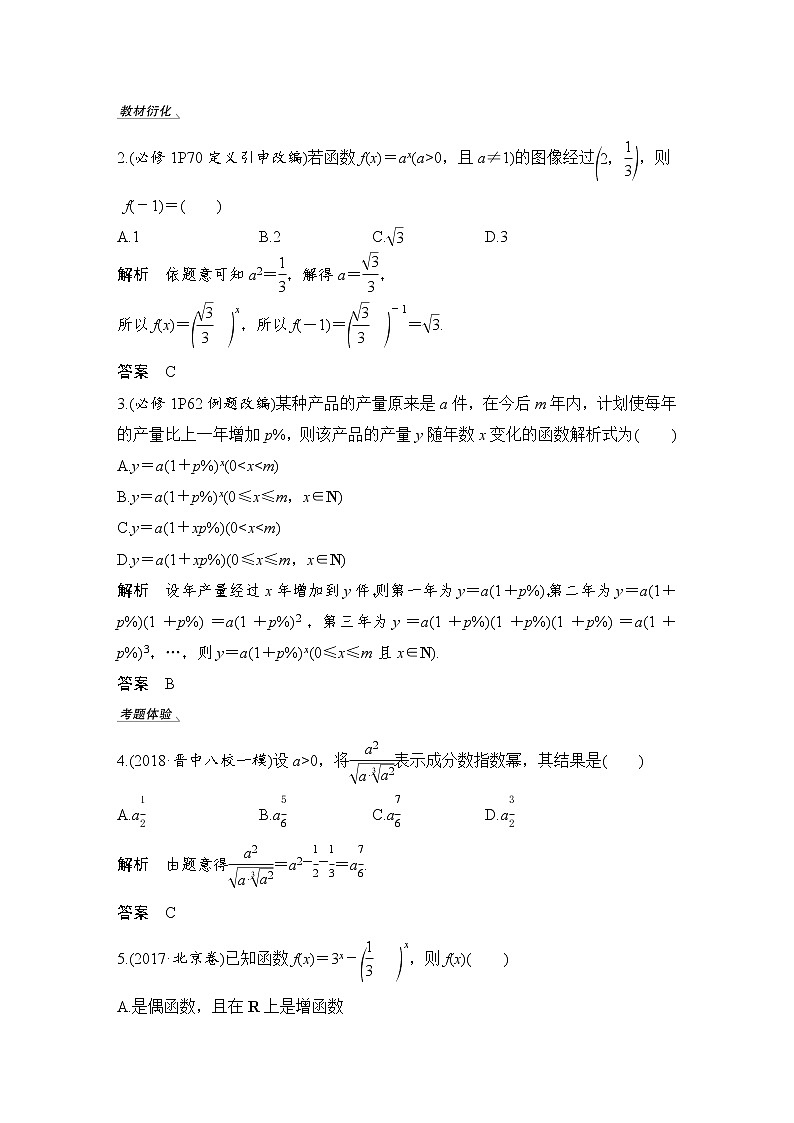 教材衍化
2.(必修1P70定义引申改编)若函数f(x)=aˣ(a>0，且a≠1)的图像经过(2，1/3)，则
f(-1)=(　　)
A.1　B.2　C.√3　D.3
解析　依题意可知a²=1/3，解得a=√3/3，
所以f(x)=(√3/3)ˣ，所以f(-1)=(√3/3)⁻¹=√3.
答案　C
3.(必修1P62例题改编)某种产品的产量原来是a件，在今后m年内，计划使每年
的产量比上一年增加p%，则该产品的产量y随年数x变化的函数解析式为(　　)
A.y=a(1+p%)ˣ(0<x<m)
B.y=a(1+p%)ˣ(0≤x≤m，x∈N)
C.y=a(1+xp%)(0<x<m)
D.y=a(1+xp%)(0≤x≤m，x∈N)
解析　设年产量经过x年增加到y件，则第一年为y=a(1+p%)，第二年为y=a(1+
p%)(1+p%)=a(1+p%)²，第三年为y=a(1+p%)(1+p%)(1+p%)=a(1+
p%)³，…，则y=a(1+p%)ˣ(0≤x≤m且x∈N).
答案　B
考题体验
4.(2018·晋中八校一模)设a>0，将a²/√(a·∛(a²))表示成分数指数幂，其结果是(　　)
A.a^(1/2)　B.a^(5/6)　C.a^(7/6)　D.a^(3/2)
解析　由题意得a²/√(a·∛(a²))=a^(2-1/2-1/3)=a^(7/6).
答案　C
5.(2017·北京卷)已知函数f(x)=3ˣ-(1/3)ˣ，则f(x)(　　)
A.是偶函数，且在R上是增函数